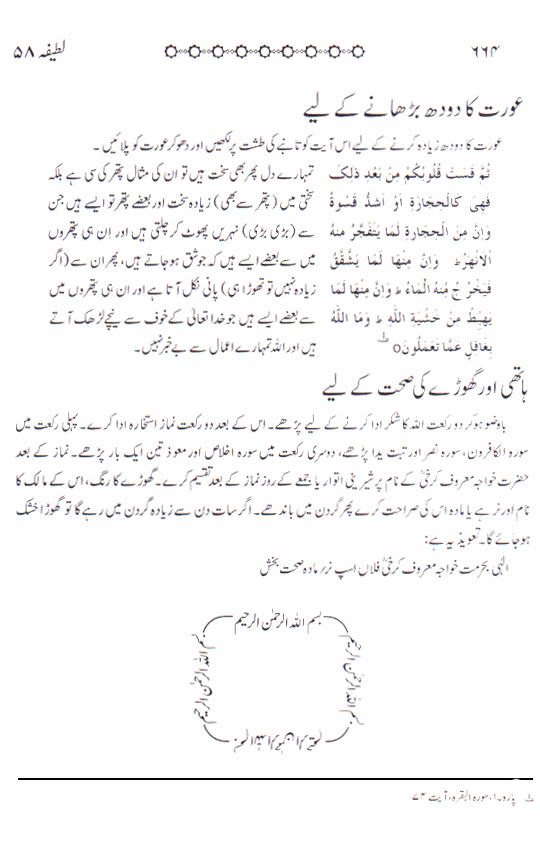 ۶۶۴
لطیفہ ۵۸
عورت کا دودھ بڑھانے کے لیے
عورت کا دودھ زیادہ کرنے کے لیے اس آیت کو تانبے کی طشت پر لکھیں اور دھو کر عورت کو پلائیں ۔
ثُمَّ قَسَتْ قُلُوْبُكُمْ مِنْ بَعْدِ ذٰلِكَ
فَهِیَ كَالْحِجَارَةِ اَوْ اَشَدُّ قَسْوَةً
وَاِنَّ مِنَ الْحِجَارَةِ لَمَا یَتَفَجَّرُ مِنْهُ
الْاَنْهٰرُ ط وَاِنَّ مِنْهَا لَمَا یَشَّقَّقُ
فَیَخْرُ جُ مِنْهُ الْمَاءُ ط وَاِنَّ مِنْهَا لَمَا
یَهْبِطُ مِنْ خَشْیَةِ اللّٰهِ ط وَمَا اللّٰهُ
بِغَافِلٍ عَمَّا تَعْمَلُوْنَo ط
تمہارے دل پھر بھی سخت ہیں تو ان کی مثال پتھر کی سی ہے بلکہ
سختی میں (پتھر سے بھی) زیادہ سخت اور بعضے پتھر تو ایسے ہیں جن
سے (بڑی بڑی) نہریں پھوٹ کر چلتی ہیں اور اِن ہی پتھروں
میں سے بعضے ایسے ہیں کہ جو شق ہو جاتے ہیں، پھر ان سے (اگر
زیادہ نہیں تو تھوڑا ہی) پانی نکل آتا ہے اور ان ہی پتھروں میں
سے بعضے ایسے ہیں جو خدا تعالیٰ کے خوف سے نیچے لڑھک آتے
ہیں اور اللہ تمہارے اعمال سے بے خبر نہیں۔
ہاتھی اور گھوڑے کی صحت کے لیے
باوضو ہو کر دو رکعت اللہ کا شکر ادا کرنے کے لیے پڑھے۔ اس کے بعد دو رکعت نماز استخارہ ادا کرے۔ پہلی رکعت میں
سورہ الکافرون، سورہ نصر اور تبت یدا پڑھے، دوسری رکعت میں سورہ اخلاص اور معوذتین ایک بار پڑھے۔ نماز کے بعد
حضرت خواجہ معروف کرخیؒ کے نام پر شیرینی اتوار یا جمعے کے روز نماز کے بعد تقسیم کرے۔ گھوڑے کا رنگ، اس کے مالک کا
نام اور نر ہے یا مادہ اس کی صراحت کرے پھر گردن میں باندھے۔ اگر سات دن سے زیادہ گردن میں رہے گا تو گھوڑا خشک
ہو جائے گا۔ تعویذ یہ ہے:
الٰہی بحرمت خواجہ معروف کرخیؒ فلاں اسپ نر بر مادہ صحت بخش
بسم اللہ الرحمٰن الرحیم
بسم اللہ الرحمٰن الرحیم
بسم اللہ الرحمٰن الرحیم
بسم اللہ الرحمٰن الرحیم
ط پارہ۔۱، سورہ البقرہ، آیت ۷۴